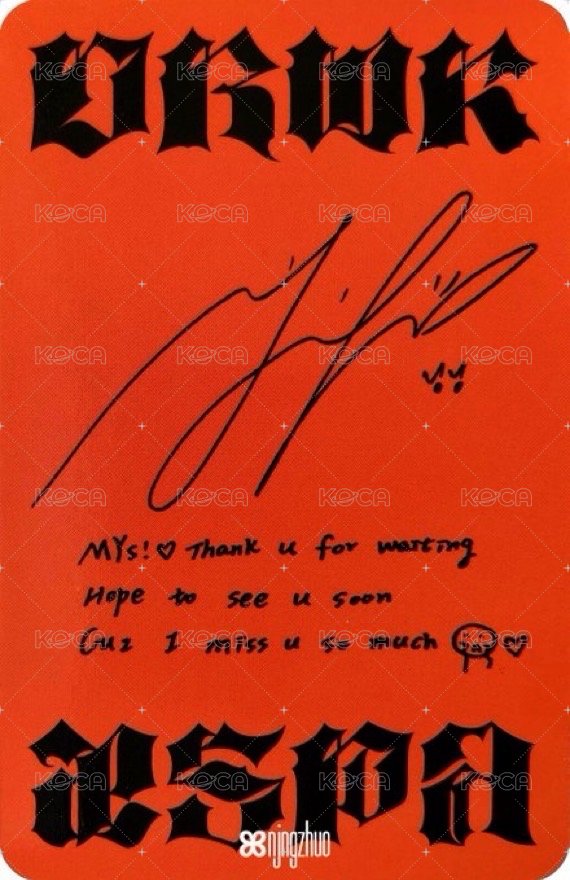 DRWR
KOCA KOCA KOCA KOCA
KOCA KOCA KOCA KOCA
KOCA KOCA KOCA KOCA
KOCA KOCA KOCA KOCA
MYs!♡ Thank u for waiting
Hope to see u soon
Cuz I miss u so much ♡
KOCA KOCA KOCA KOCA
aespa
KOCA KOCA KOCA KOCA
njngzhuo